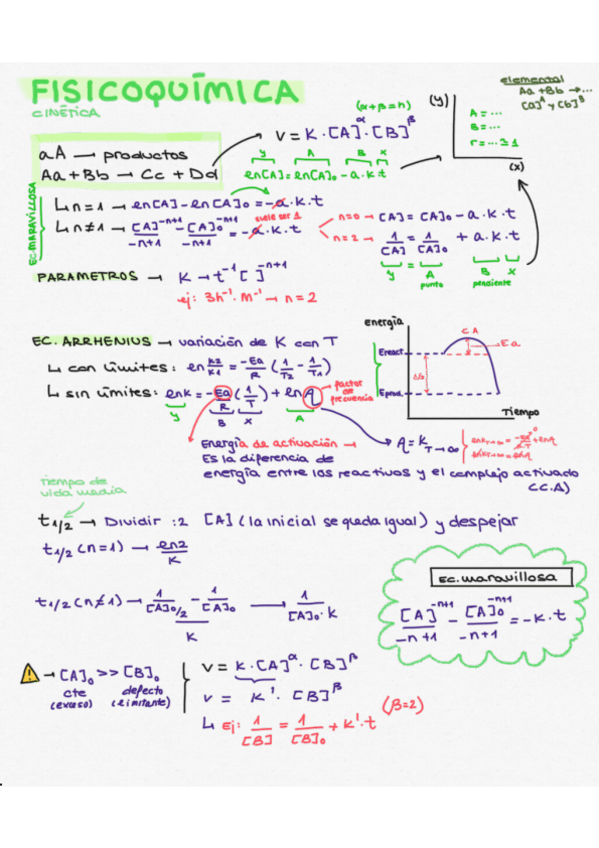 FISICOQUÍMICA
CINÉTICA
elemental
Aa + Bb → ...
[A]^A y [B]^B
aA → productos
Aa + Bb → Cc + Dd
(α+β=n)
V = K · [A]^α · [B]^β
y A B x
en[A] = en[A]₀ - a·k·t
(y)
A = ...
B = ...
r = ... ≃ 1
(x)
EC. MARAVILLOSA
↳ n=1 → en[A] - en[A]₀ = -a·k·t
suele ser 1
↳ n≠1 → [A]^-n+1/-n+1 - [A]₀^-n+1/-n+1 = -a·k·t
n=0 → [A] = [A]₀ - a·k·t
n=2 → 1/[A] = 1/[A]₀ + a·k·t
y = A B x
punto pendiente
PARAMETROS → K → t^-1 [ ]^-n+1
ej: 3h^-1·M^-1 → n = 2
EC. ARRHENIUS → variación de K con T
↳ con límites: en K2/K1 = -Ea/R (1/T2 - 1/T1)
↳ sin límites: en k = -Ea/R (1/T) + en A
y B x A
factor de frecuencia
energía
CA
Ea
Ereact
Eprod
Tiempo
Energía de activación →
Es la diferencia de
energía entre los reactivos y el complejo activado
(C.A)
A = K T→∞
tiempo de
vida media
t1/2 → Dividir :2 [A] (la inicial se queda igual) y despejar
t1/2 (n=1) → en2/K
t1/2 (n≠1) → 1/[A]₀/2 - 1/[A]₀ / K → 1/[A]₀·K
EC. maravillosa
[A]^-n+1/-n+1 - [A]₀^-n+1/-n+1 = -K·t
⚠ → [A]₀ >> [B]₀
cte defecto
(exceso) (limitante)
V = K·[A]^α·[B]^β
V = K'·[B]^β
↳ Ej: 1/[B] = 1/[B]₀ + K'·t (β=2)